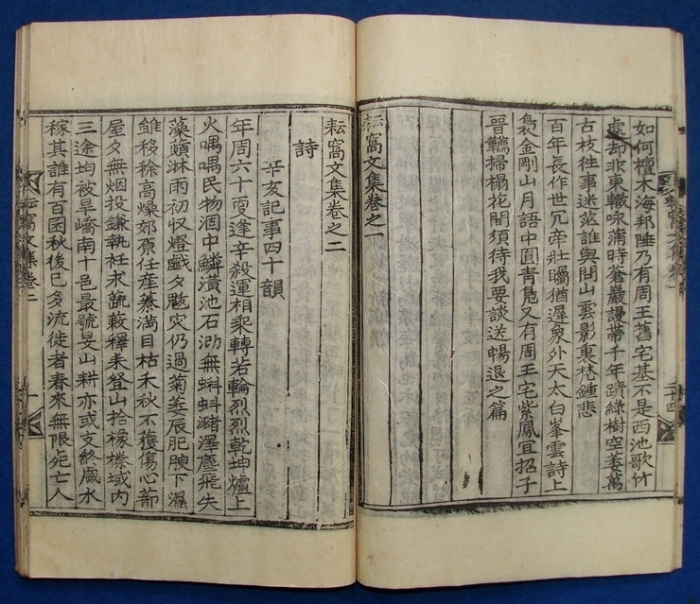 如何檀木海邦陲乃有周王舊宅基不是西池歌竹
處却非東轍咏蒲時蒼巖謾帶千年蹟綠樹空萎萬
古枝往事迷茫誰與問山雲影裏梵鍾悲
百年長作世冗牽壯矚猶遲象外天太白峯雲詩上
袅金剛山月語中圓青鳧又有周王宅紫鳳宜招子
晉韉掃榻花間須待我要談送暢退之篇
耘窩文集卷之一
耘窩文集卷之二
詩
辛亥記事四十韻
年周六十戛逢辛殺運相乘轉若輪烈烈乾坤爐上
火喁喁民物涸中鱗潢池石泐無蝌蚪豬澤塵飛失
藻蘋淋雨初收燈戲夕颩灾仍過菊萎辰肥腴下濕
雖移稌高燥郊原任産蓁滿目枯木秋不獲傷心蔀
屋夕無烟投鎌執𥫱求蔬藪釋耒登山拾橡榛域内
三途均被旱嶠南十邑最號旻山耕亦或支終歲水
稼其誰有百囷秋後已多流徙者春來無限死亡人
耘窩文集卷二
一
二十四